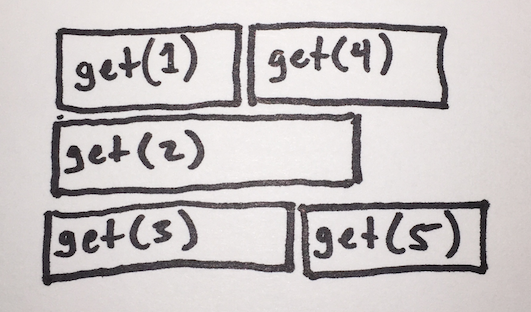 get(1) get(4)
get(2)
get(3) get(5)